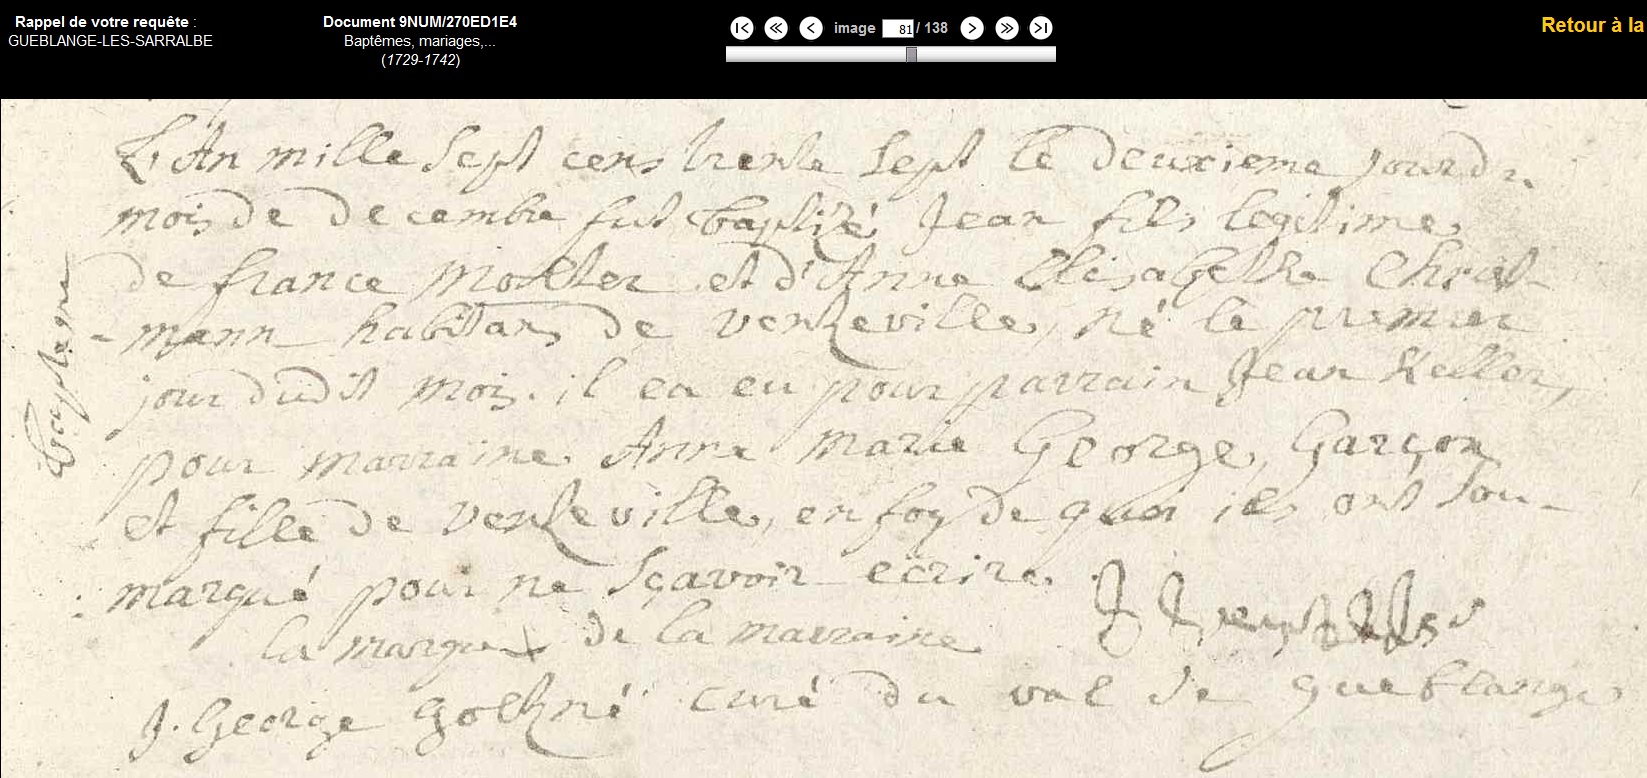 Rappel de votre requête :
GUEBLANGE-LES-SARRALBE
Document 9NUM/270ED1E4
Baptêmes, mariages,...
(1729-1742)
image 81 / 138
Retour à la
L'An mille Sept cens trente Sept le deuxieme jour du
mois de decembre fut baptizé Jean fils legitime
de france et d'Anne Elisabetha Christ-
-mann habitans de ventzeville, né le premier
jour dudit mois. il ea eu pour parrain Jean Keller,
pour marraine Anne Marie George, Garçon
et fille de ventzeville, en foy de quoi ils ont sou-
marqué pour ne sçavoir ecrire.
la marque x de la marraine
J. George curé du val de gueblange
Baptême